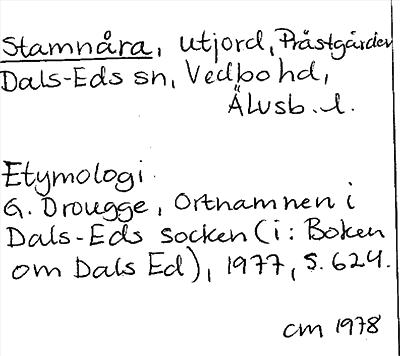 Stamnåra, utjord, Prästgården
Dals-Eds sn, Vedbo hd,
Älvsb. l.
Etymologi
G. Drougge, Ortnamnen i
Dals-Eds socken (i: Boken
om Dals Ed), 1977, s. 624.
cm 1978